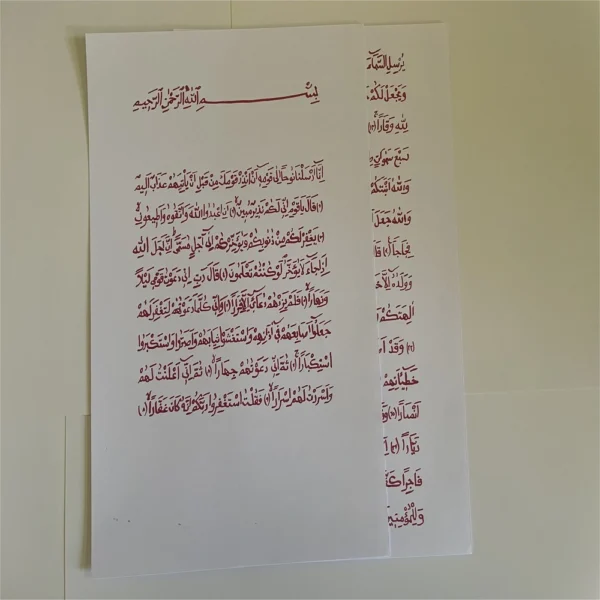 بِسْمِ اللّٰهِ الرَّحْمٰنِ الرَّحِيمِ
إِنَّا أَرْسَلْنَا نُوحًا إِلَى قَوْمِهِ أَنْ أَنْذِرْ قَوْمَكَ مِنْ قَبْلِ أَنْ يَأْتِيَهُمْ عَذَابٌ أَلِيمٌ
(١) قَالَ يَا قَوْمِ إِنِّي لَكُمْ نَذِيرٌ مُبِينٌ (٢) أَنِ اعْبُدُوا اللّٰهَ وَاتَّقُوهُ وَأَطِيعُونِ
(٣) يَغْفِرْ لَكُمْ مِنْ ذُنُوبِكُمْ وَيُؤَخِّرْكُمْ إِلَى أَجَلٍ مُسَمًّى إِنَّ أَجَلَ اللّٰهِ
إِذَا جَاءَ لَا يُؤَخَّرُ لَوْ كُنْتُمْ تَعْلَمُونَ (٤) قَالَ رَبِّ إِنِّي دَعَوْتُ قَوْمِي لَيْلًا
وَنَهَارًا (٥) فَلَمْ يَزِدْهُمْ دُعَائِي إِلَّا فِرَارًا (٦) وَإِنِّي كُلَّمَا دَعَوْتُهُمْ لِتَغْفِرَ لَهُمْ
جَعَلُوا أَصَابِعَهُمْ فِي آذَانِهِمْ وَاسْتَغْشَوْا ثِيَابَهُمْ وَأَصَرُّوا وَاسْتَكْبَرُوا
اسْتِكْبَارًا (٧) ثُمَّ إِنِّي دَعَوْتُهُمْ جِهَارًا (٨) ثُمَّ إِنِّي أَعْلَنْتُ لَهُمْ
وَأَسْرَرْتُ لَهُمْ إِسْرَارًا (٩) فَقُلْتُ اسْتَغْفِرُوا رَبَّكُمْ إِنَّهُ كَانَ غَفَّارًا (١٠)
يُرْسِلِ السَّمَاءَ
وَيَجْعَلْ لَكُمْ
لِلّٰهِ وَقَارًا (١٣)
سَبْعَ سَمٰوَاتٍ
وَاللّٰهُ أَنْبَتَكُمْ
وَاللّٰهُ جَعَلَ
فِجَاجًا (٢٠) قَا
وَوَلَدُهُ إِلَّا خَ
آلِهَتَكُمْ
(٢٣) وَقَدْ أَ
خَطِيئَاتِهِمْ
أَنْصَارًا (٢٥) وَ
دَيَّارًا (٢٦) إِ
فَاجِرًا كَفَّ
وَلِلْمُؤْمِنِينَ